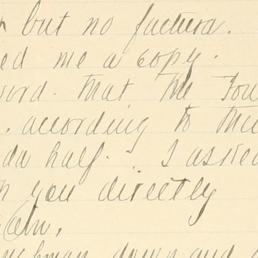 but no factura.
ed me a copy.
word that the Tou
according to the
da half. I asked
h you directly

chman down and